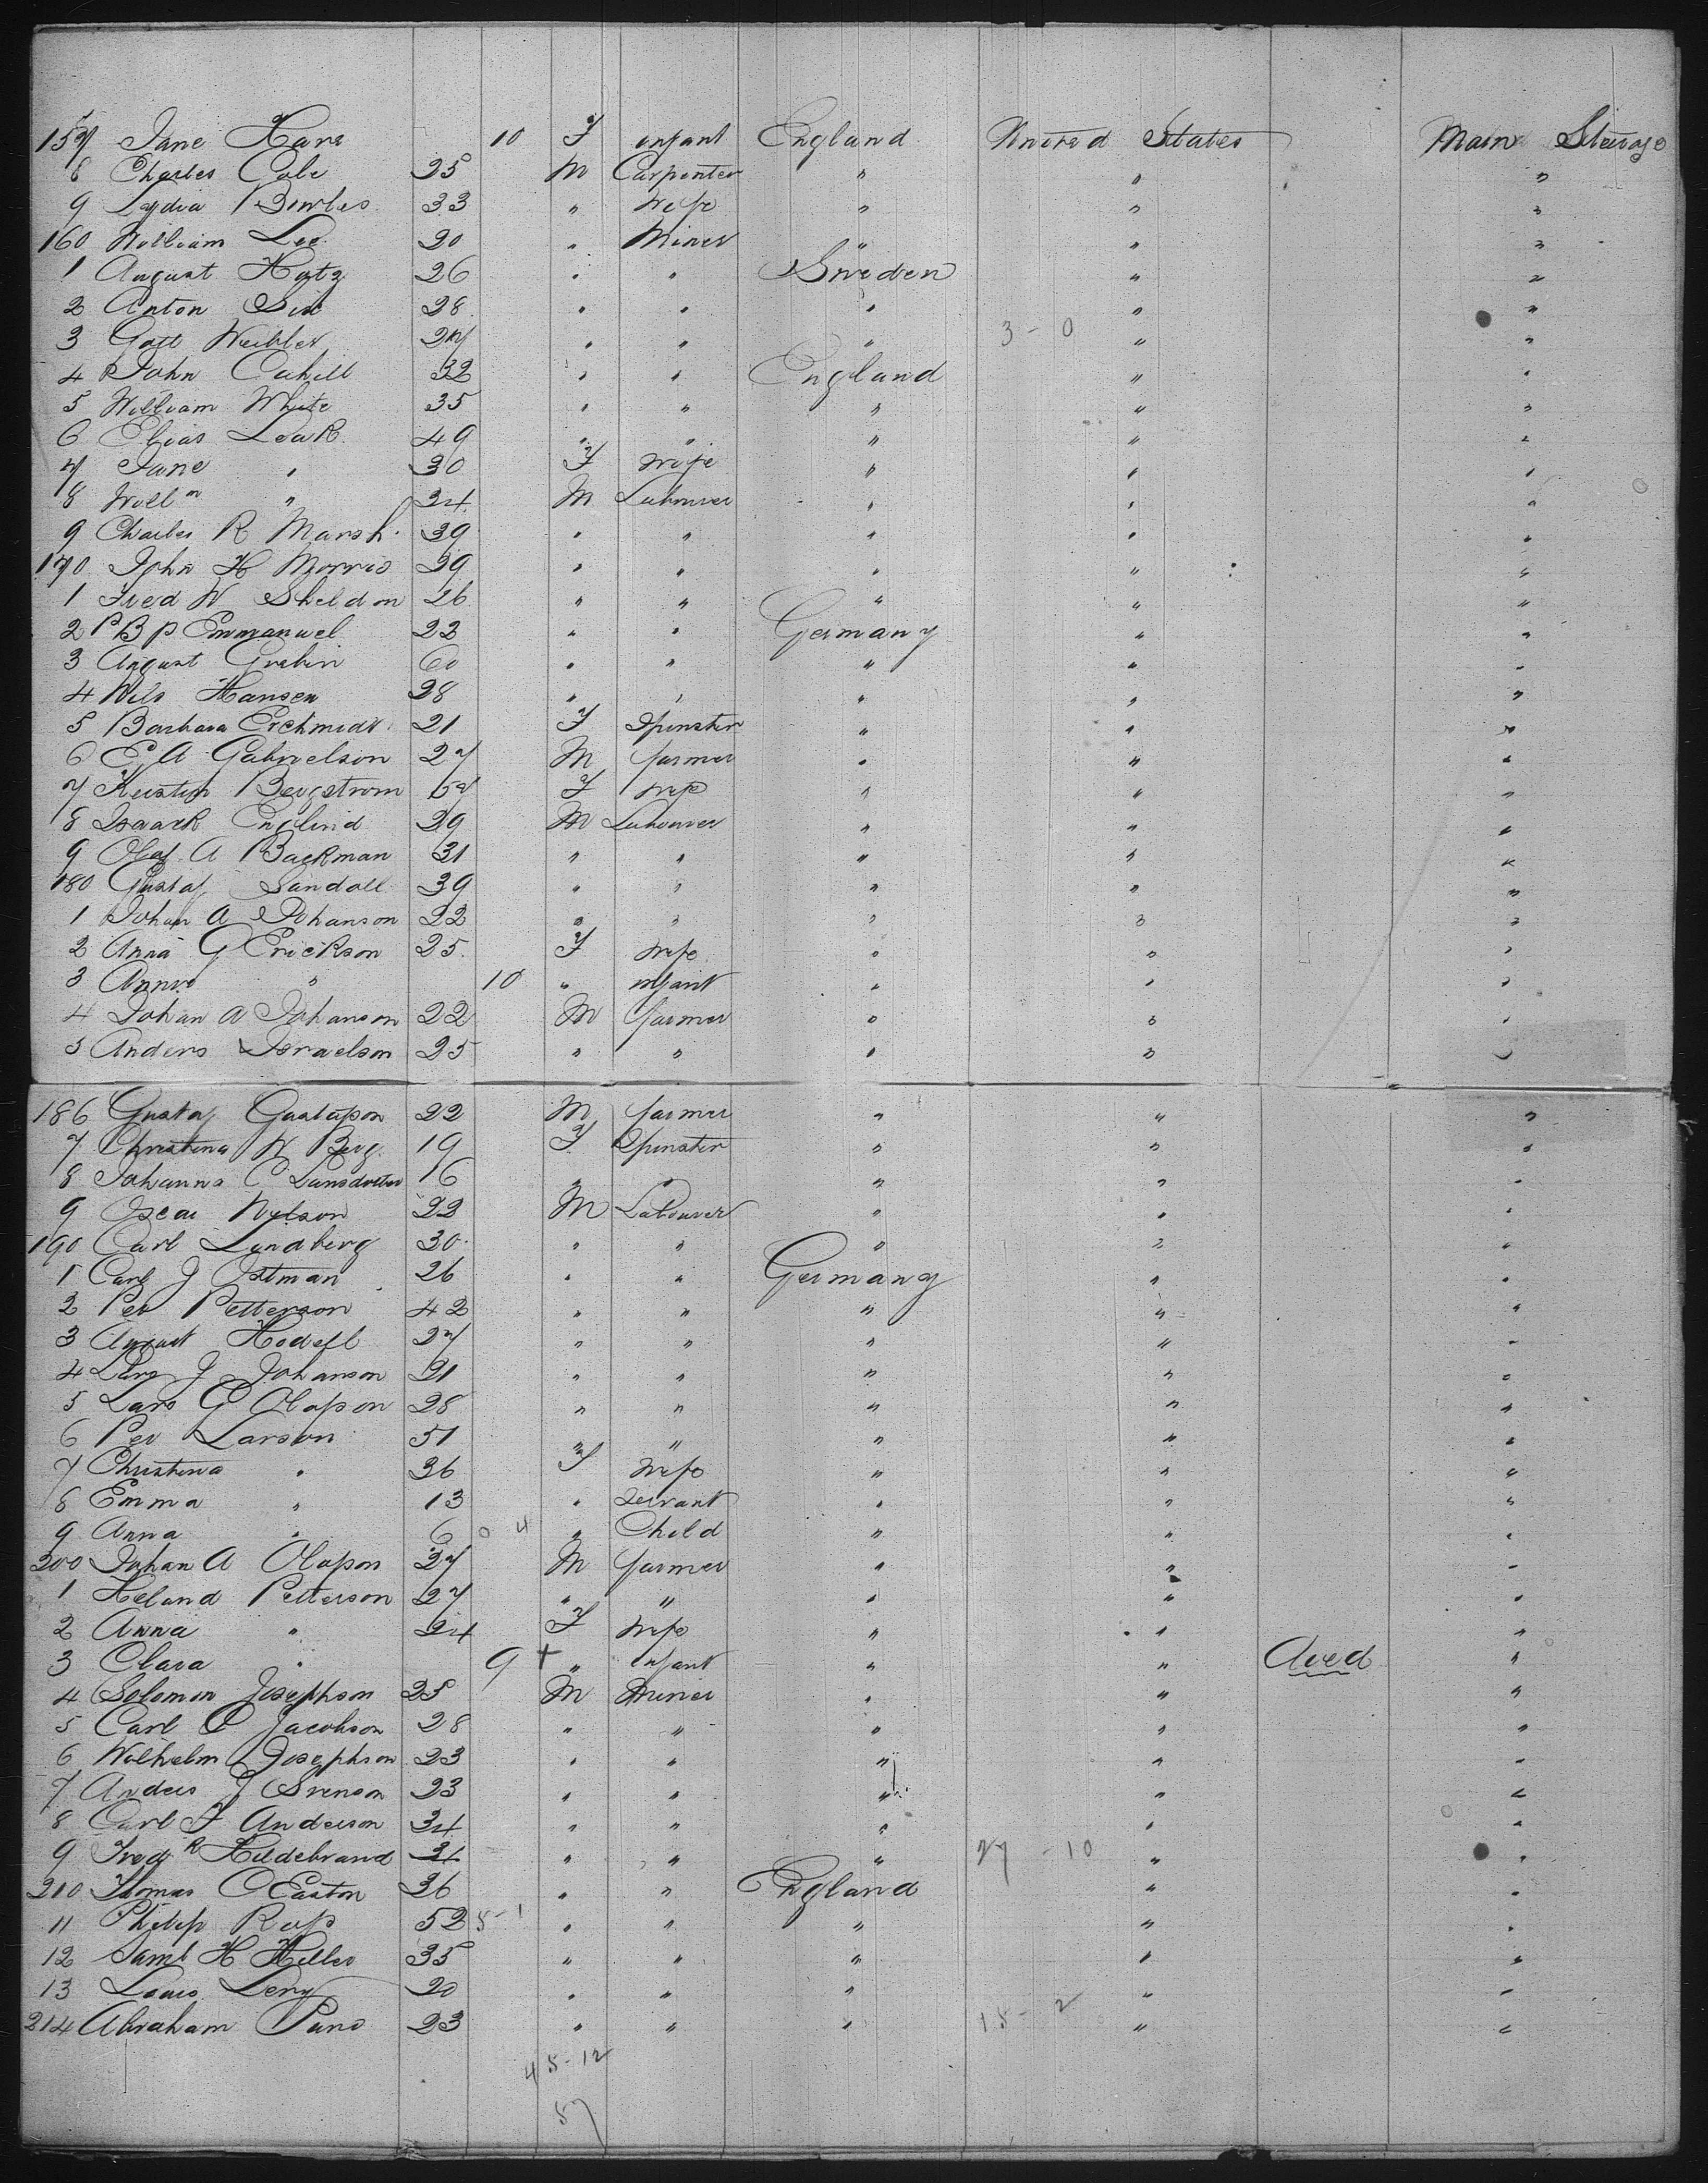 157 Jane Hare 10 F infant England United States Main Steerage
8 Charles Cole 25 M Carpenter " " "
9 Lydia Bowles 33 " Wife " " "
160 William Lee 20 " Miner " " "
1 August Hatz 26 " " Sweden " "
2 Anton 28 " " " " "
3 Gott Weibler 27 " " " 3 - 0 " "
4 John Cahill 32 " " England " "
5 William White 35 " " " " "
6 Elias Leak 49 " " " " "
7 Jane " 30 F wife " " "
8 Willm " 24 M Labourer " " "
9 Charles R Marsh 39 " " " " "
170 John H Morris 39 " " " " "
1 Fred W Sheldon 26 " " " " "
2 P B P Emmanuel 22 " " Germany " "
3 August Grabin 60 " " " " "
4 Nils Hansen 28 " " " " "
5 Barbara Erchmidt 21 F Spinster " " "
6 E A Gabrielson 27 M farmer " " "
7 Kerstin Bergstrom 67 F wife " " "
8 Isaack Englind 29 M Labourer " " "
9 Olof A Backman 31 " " " " "
180 Gustaf Sandall 39 " " " " "
1 Johan A Johanson 22 " " " " "
2 Anna G Erickson 25 F wife " " "
3 Anna " 10 " infant " " "
4 Johan A Johanson 22 M farmer " " "
5 Anders Israelson 25 " " " " "
186 Gustaf Gustafson 22 M farmer " " "
7 Christina W Berg 19 F Spinster " " "
8 Johanna C Larsdotter 16 " " " " "
9 Oscar Nylson 22 M Labourer " " "
190 Carl Lundberg 30 " " " " "
1 Carl J Ostman 26 " " Germany " "
2 Per Petterson 42 " " " " "
3 August Hodell 27 " " " " "
4 Lars J Johanson 21 " " " " "
5 Lars G Olofson 28 " " " " "
6 Per Larson 51 " " " " "
7 Christina " 36 F wife " " "
8 Emma " 13 " Servant " " "
9 Anna " 6 0 4 " Child " " "
200 Johan A Olofson 37 M farmer " " "
1 Heland Petterson 27 " " " " "
2 Anna " 24 F wife " " "
3 Clara " 9 + " infant " " died "
4 Solomon Josephson 25 M Miner " " "
5 Carl O Jacobson 28 " " " " "
6 Wilhelm Josephson 23 " " " " "
7 Anders J Svenson 23 " " " " "
8 Carl F Anderson 34 " " " " "
9 Fredk Hildebrand 31 " " " 27 - 10 " "
210 Thomas C Easton 36 " " England " "
11 Philip Rofs 52 5 - 1 " " " " "
12 Saml H Heller 35 " " " " "
13 Louis Levy 20 " " " " "
214 Abraham 23 " " " 15 - 2 " "
45 - 12
57